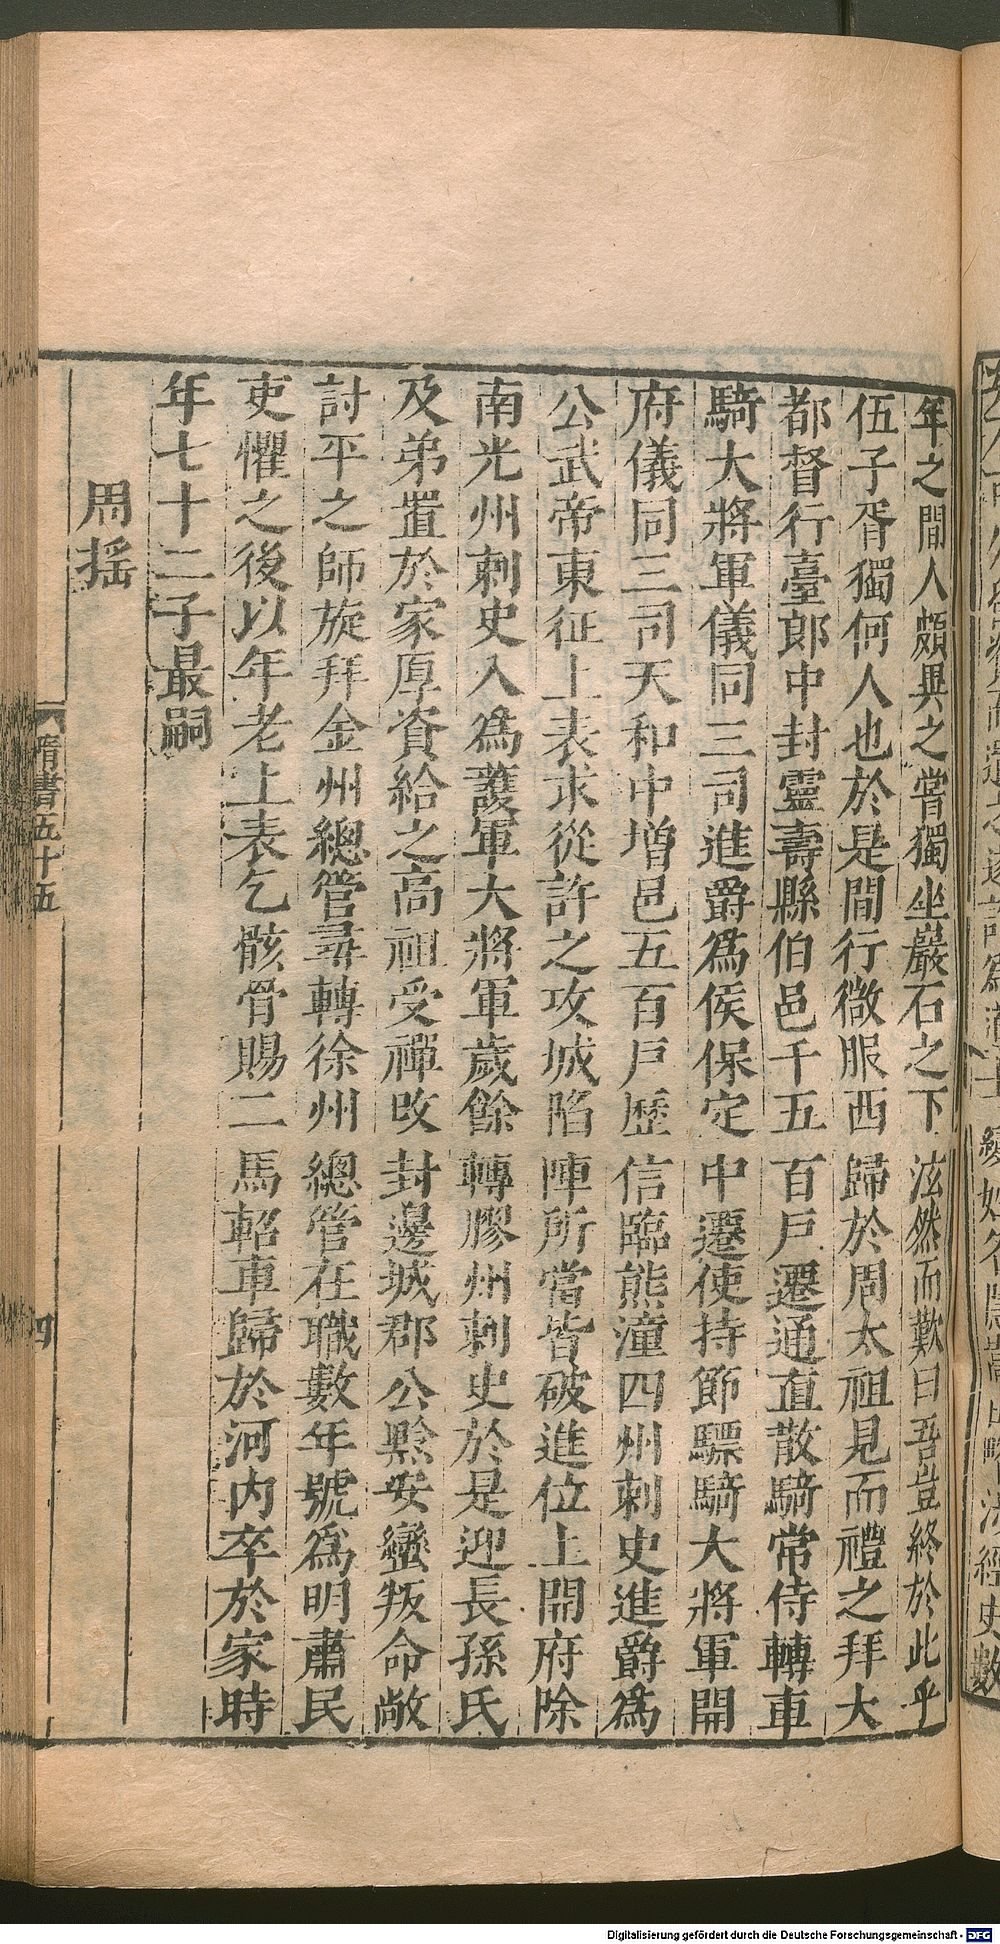 年之間人頗異之嘗獨坐巖石之下泫然而歎曰吾豈終於此乎
伍子胥獨何人也於是間行微服西歸於周太祖見而禮之拜大
都督行臺郎中封靈壽縣伯邑千五百戶遷通直散騎常侍轉車
騎大將軍儀同三司進爵爲侯保定中遷使持節驃騎大將軍開
府儀同三司天和中增邑五百戶歷信臨熊潼四州刺史進爵爲
公武帝東征上表求從許之攻城陷陣所當皆破進位上開府除
南光州刺史入爲護軍大將軍歲餘轉膠州刺史於是迎長孫氏
及弟置於家厚資給之高祖受禪改封邊城郡公黔安蠻叛命敞
討平之師旋拜金州總管尋轉徐州總管在職數年號爲明肅民
吏懼之後以年老上表乞骸骨賜二馬軺車歸於河內卒於家時
年七十二子最嗣
周搖
隋書五十五
四
Digitalisierung gefördert durch die Deutsche Forschungsgemeinschaft - DFG